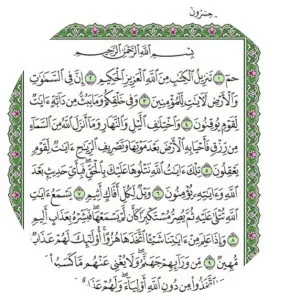 بِسْمِ ٱللَّهِ ٱلرَّحْمَٰنِ ٱلرَّحِيمِ
حمٓ ١ تَنزِيلُ ٱلْكِتَٰبِ مِنَ ٱللَّهِ ٱلْعَزِيزِ ٱلْحَكِيمِ ٢ إِنَّ فِى ٱلسَّمَٰوَٰتِ
وَٱلْأَرْضِ لَءَايَٰتٍ لِّلْمُؤْمِنِينَ ٣ وَفِى خَلْقِكُمْ وَمَا يَبُثُّ مِن دَآبَّةٍ ءَايَٰتٌ
لِّقَوْمٍ يُوقِنُونَ ٤ وَٱخْتِلَٰفِ ٱلَّيْلِ وَٱلنَّهَارِ وَمَآ أَنزَلَ ٱللَّهُ مِنَ ٱلسَّمَآءِ
مِن رِّزْقٍ فَأَحْيَا بِهِ ٱلْأَرْضَ بَعْدَ مَوْتِهَا وَتَصْرِيفِ ٱلرِّيَٰحِ ءَايَٰتٌ لِّقَوْمٍ
يَعْقِلُونَ ٥ تِلْكَ ءَايَٰتُ ٱللَّهِ نَتْلُوهَا عَلَيْكَ بِٱلْحَقِّ ۖ فَبِأَىِّ حَدِيثٍۭ بَعْدَ
ٱللَّهِ وَءَايَٰتِهِۦ يُؤْمِنُونَ ٦ وَيْلٌ لِّكُلِّ أَفَّاكٍ أَثِيمٍ ٧ يَسْمَعُ ءَايَٰتِ
ٱللَّهِ تُتْلَىٰ عَلَيْهِ ثُمَّ يُصِرُّ مُسْتَكْبِرًا كَأَن لَّمْ يَسْمَعْهَا ۖ فَبَشِّرْهُ بِعَذَابٍ أَلِيمٍ
٨ وَإِذَا عَلِمَ مِنْ ءَايَٰتِنَا شَيْـًٔا ٱتَّخَذَهَا هُزُوًا ۚ أُو۟لَٰٓئِكَ لَهُمْ عَذَابٌ
مُّهِينٌ ٩ مِّن وَرَآئِهِمْ جَهَنَّمُ ۖ وَلَا يُغْنِى عَنْهُم مَّا كَسَبُوا۟
ٱتَّخَذُوا۟ مِن دُونِ ٱللَّهِ أَوْلِيَآءَ ۖ وَلَهُمْ عَذَا